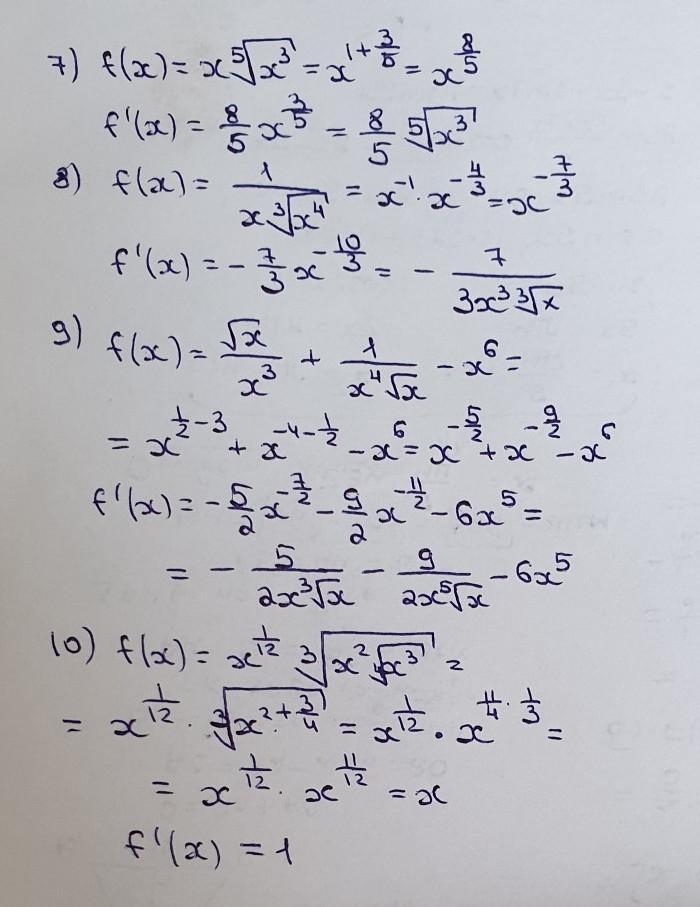 7) f(x) = x ⁵√(x³) = x^(1+3/5) = x^(8/5)
f'(x) = 8/5 x^(3/5) = 8/5 ⁵√(x³)
8) f(x) = 1/(x ³√(x⁴)) = x^(-1) · x^(-4/3) = x^(-7/3)
f'(x) = -7/3 x^(-10/3) = - 7/(3x³ ³√x)
9) f(x) = √x/x³ + 1/(x⁴√x) - x⁶ =
= x^(1/2-3) + x^(-4-1/2) - x⁶ = x^(-5/2) + x^(-9/2) - x⁶
f'(x) = -5/2 x^(-7/2) - 9/2 x^(-11/2) - 6x⁵ =
= - 5/(2x³√x) - 9/(2x⁵√x) - 6x⁵
10) f(x) = x^(1/12) ³√(x² ⁴√(x³)) =
= x^(1/12) · ³√(x^(2+3/4)) = x^(1/12) · x^(11/4 · 1/3) =
= x^(1/12) · x^(11/12) = x
f'(x) = 1